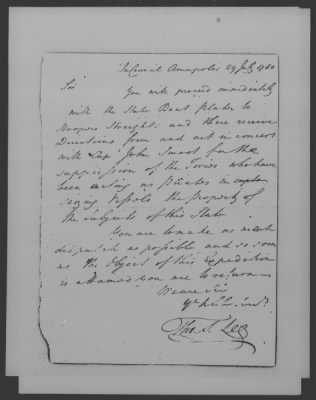 In Council Annapolis 29 July 1780
Sir
You will proceed immediately
with the State Boat Plater to
Hoopers Streights and there receive
Directions from and act in concert
with Cap John Smoot for the
suppression of the Tories who have
been acting as Pirates in captur
Vessels the property of
the subjects of this State
You are to make as much
dispatch as possible and so soon
as the Object of this Expedition
is attained you are to return
We are Sir
Tho. S. Lee